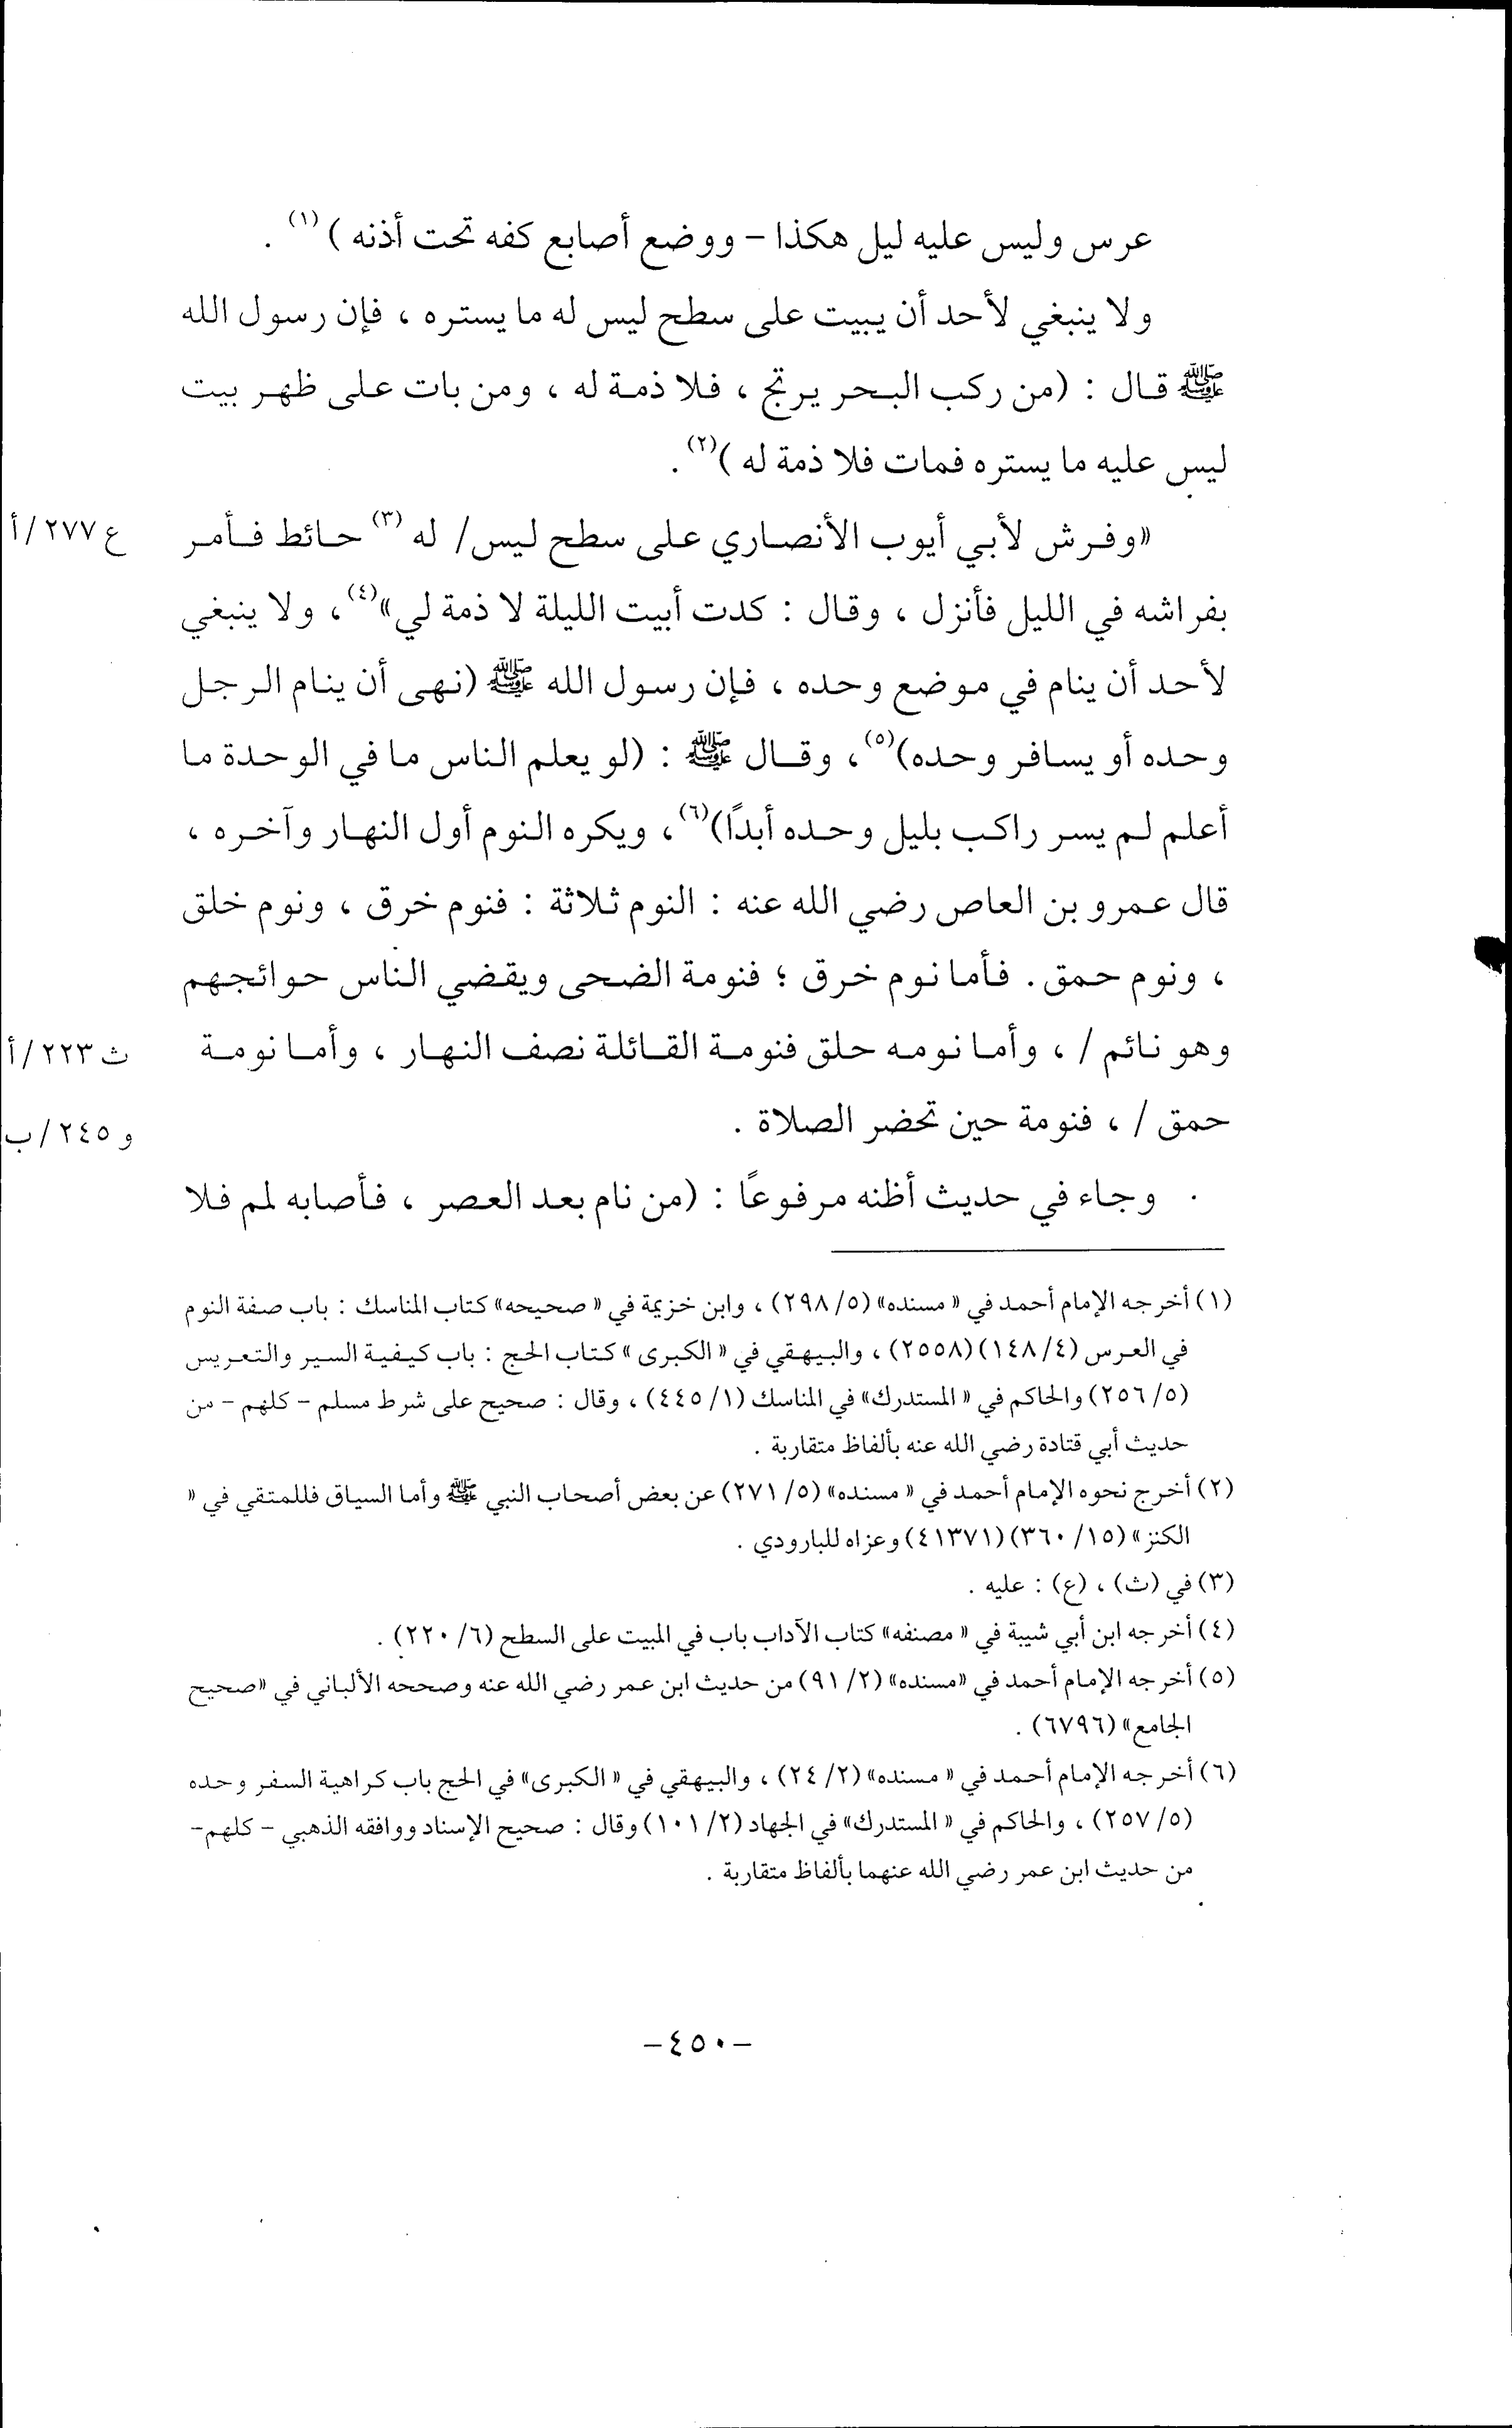 عرس وليس عليه ليل هكذا – ووضع أصابع كفه تحت أذنه )(١) .
ولا ينبغي لأحد أن يبيت على سطح ليس له ما يستره ، فإن رسول الله
ﷺ قال : (من ركب البحر يرتج ، فلا ذمة له ، ومن بات على ظهر بيت
ليس عليه ما يستره فمات فلا ذمة له )(٢) .
«وفرش لأبي أيوب الأنصاري على سطح ليس/ له (٣) حائط فأمر
ع ٢٧٧/أ
بفراشه في الليل فأنزل ، وقال : كدت أبيت الليلة لا ذمة لي»(٤)، ولا ينبغي
لأحد أن ينام في موضع وحده ، فإن رسول الله ﷺ (نهى أن ينام الرجل
وحده أو يسافر وحده)(٥)، وقال ﷺ : (لو يعلم الناس ما في الوحدة ما
أعلم لم يسر راكب بليل وحده أبدًا)(٦)، ويكره النوم أول النهار وآخره ،
قال عمرو بن العاص رضي الله عنه : النوم ثلاثة : فنوم خرق ، ونوم خلق
، ونوم حمق . فأما نوم خرق ؛ فنومة الضحى ويقضي الناس حوائجهم
وهو نائم / ، وأما نومه حلق فنومة القائلة نصف النهار ، وأما نومة
ث ٢٢٣/أ
حمق / ، فنومة حين تحضر الصلاة .
و ٢٤٥/ب
وجاء في حديث أظنه مرفوعًا : (من نام بعد العصر ، فأصابه لمم فلا
(١) أخرجه الإمام أحمد في « مسنده» (٥/ ٢٩٨) ، وابن خزيمة في « صحيحه» كتاب المناسك : باب صفة النوم
في العرس (٤/ ١٤٨) (٢٥٥٨) ، والبيهقي في « الكبرى » كتاب الحج : باب كيفية السير والتعريس
(٥/ ٢٥٦) والحاكم في « المستدرك» في المناسك (١/ ٤٤٥) ، وقال : صحيح على شرط مسلم – كلهم – من
حديث أبي قتادة رضي الله عنه بألفاظ متقاربة .
(٢) أخرج نحوه الإمام أحمد في « مسنده» (٥/ ٢٧١) عن بعض أصحاب النبي ﷺ وأما السياق فللمتقي في «
الكنز» (١٥/ ٣٦٠) (٤١٣٧١) وعزاه للبارودي .
(٣) في (ث) ، (ع) : عليه .
(٤) أخرجه ابن أبي شيبة في « مصنفه» كتاب الآداب باب في المبيت على السطح (٦/ ٢٢٠) .
(٥) أخرجه الإمام أحمد في «مسنده» (٢/ ٩١) من حديث ابن عمر رضي الله عنه وصححه الألباني في «صحيح
الجامع» (٦٧٩٦) .
(٦) أخرجه الإمام أحمد في « مسنده» (٢/ ٢٤) ، والبيهقي في « الكبرى» في الحج باب كراهية السفر وحده
(٥/ ٢٥٧) ، والحاكم في « المستدرك» في الجهاد (٢/ ١٠١) وقال : صحيح الإسناد ووافقه الذهبي – كلهم–
من حديث ابن عمر رضي الله عنهما بألفاظ متقاربة .
–٤٥٠–